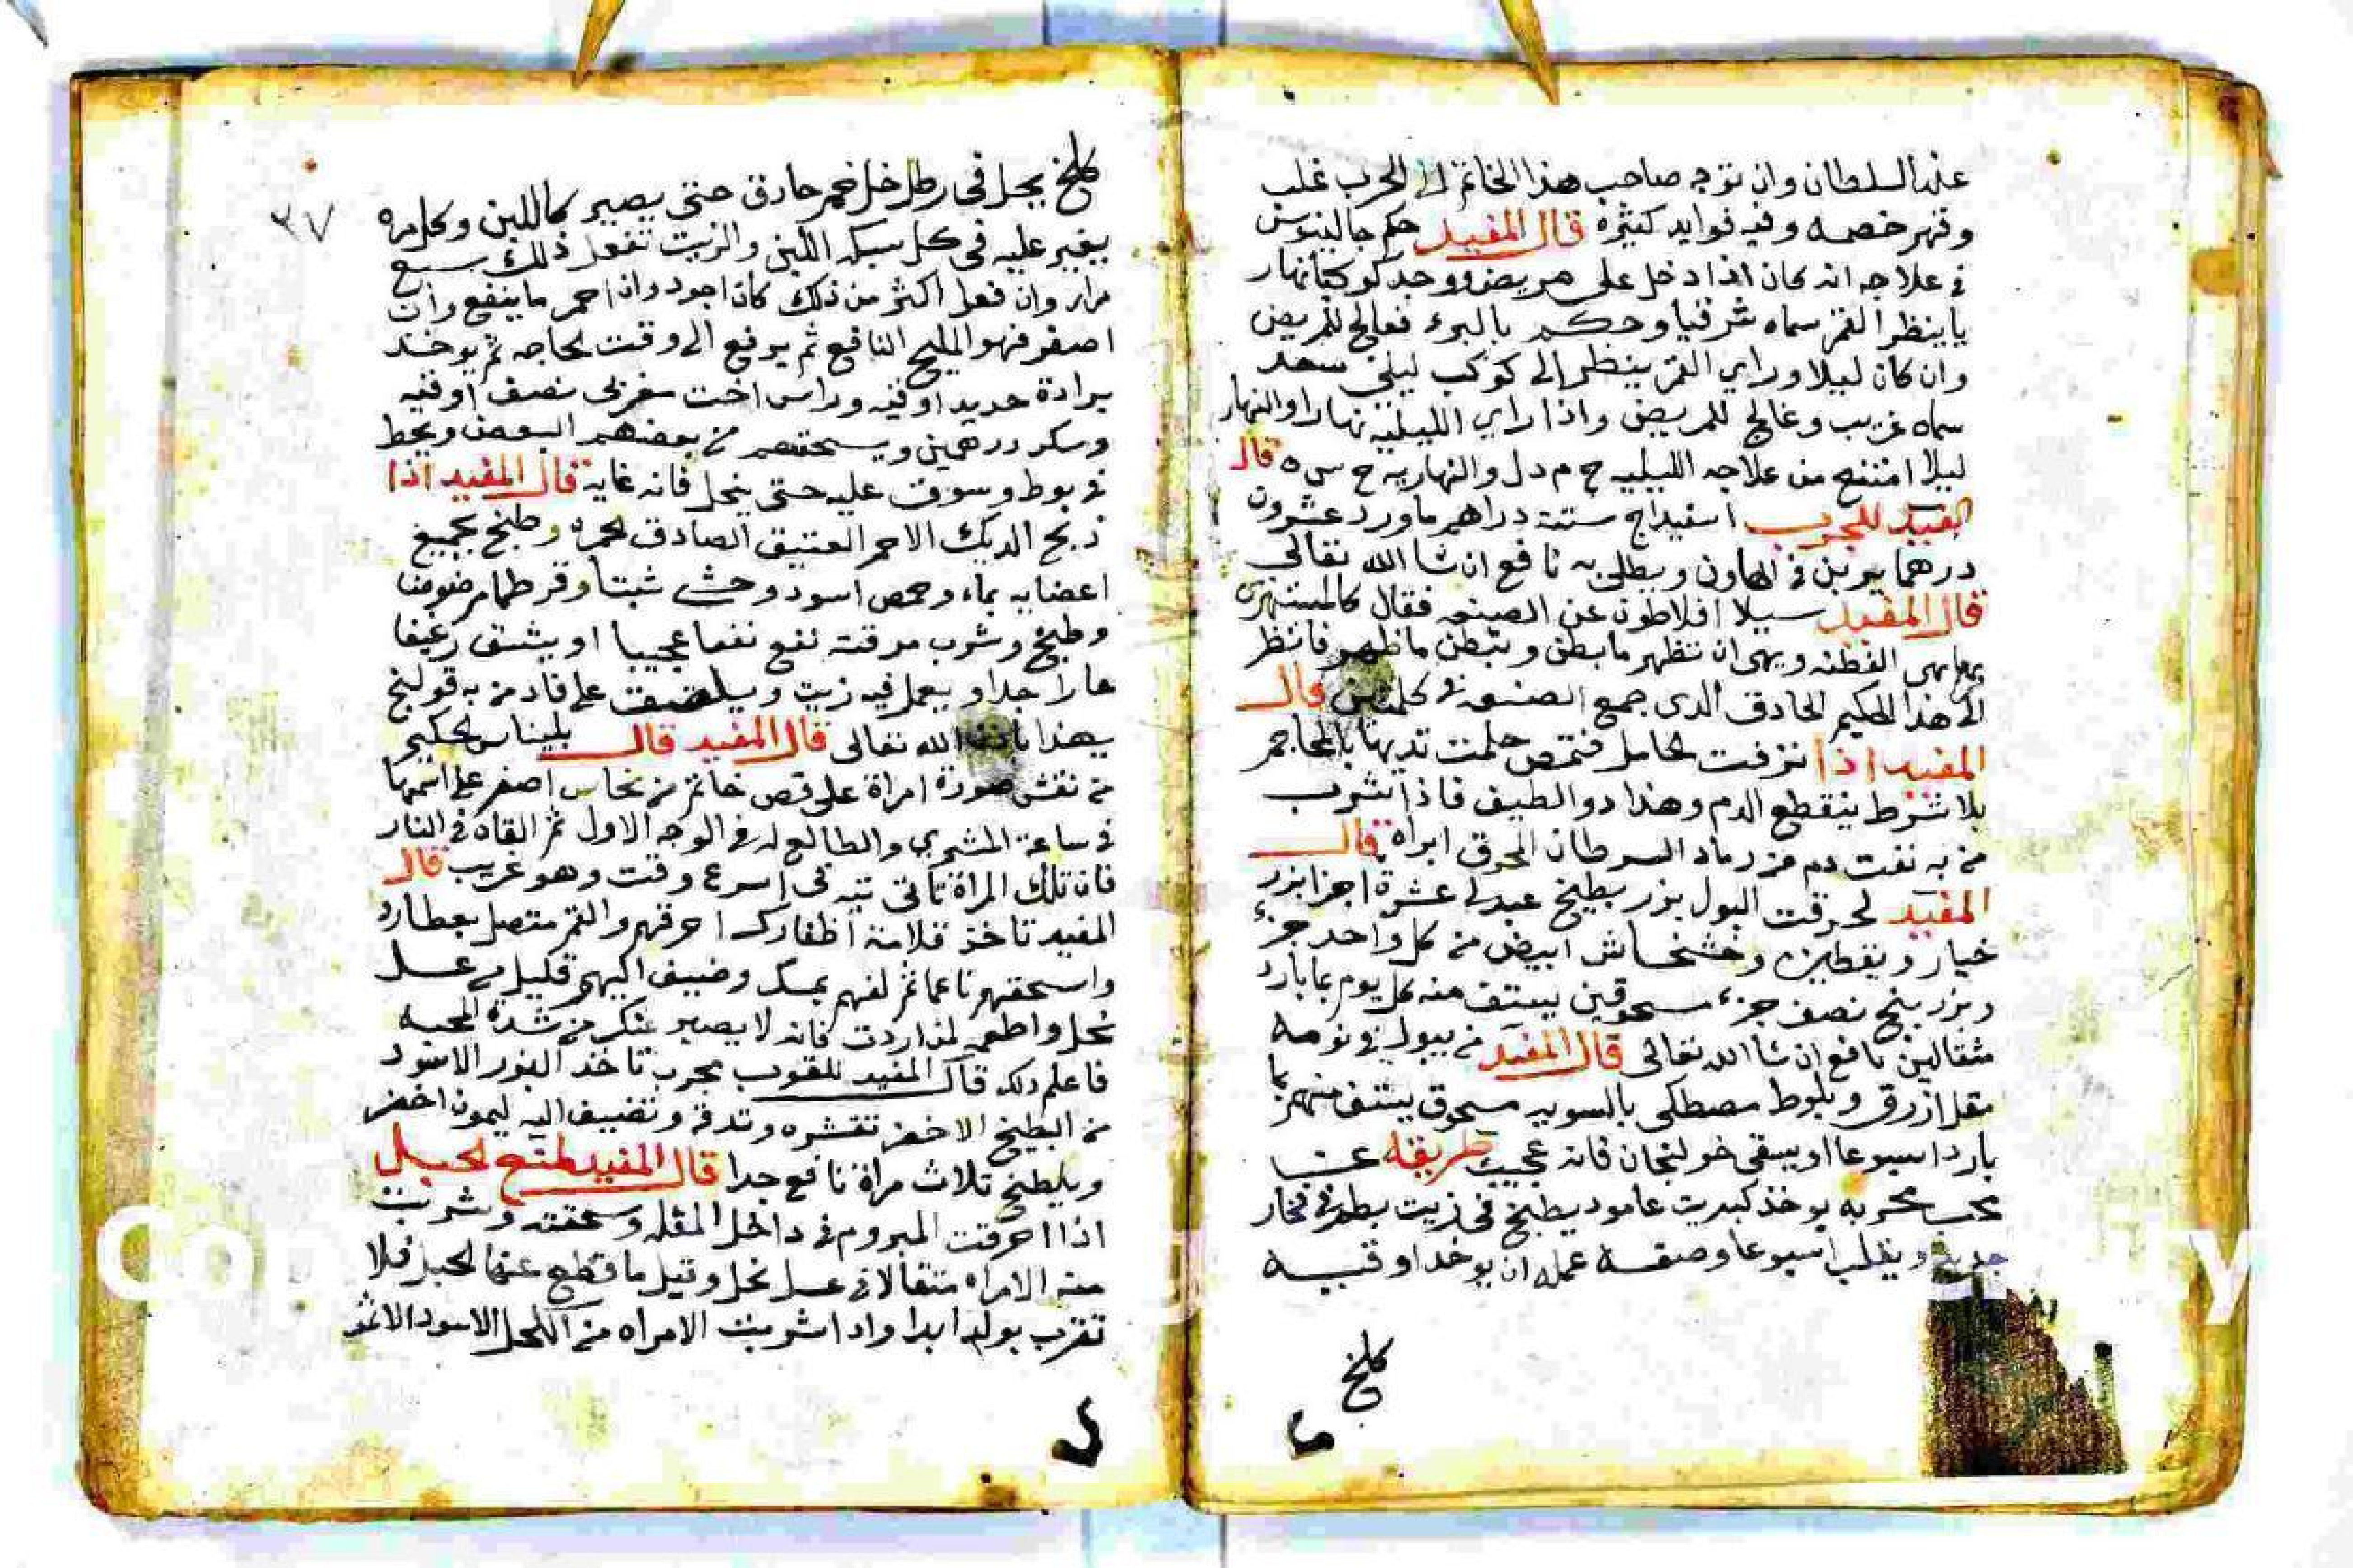 عند السلطان وان توجه صاحب هذا الخاتم الى الحرب غلب
وقهر خصمه وفيه فوايد كثيره قال المفيد حكم جالينوس
في علاجه انه كان اذا دخل على مريض ووجد كوكبا نهار
يا ينظر القمر سماه شرقيا وحكم بالبرء فعالج المريض
وان كان ليلا وراي القمر ينظر الى كوكب ليلي سعد
سماه غريب وعالج للمريض واذا راي الليليه نهارا او النهار
ليلا امتنع من علاجه الليليه ح م د ل والنهاريه ح س ه قال
المفيد للجرب اسفيداج ستة دراهم ماورد عشرون
درهما يربن في الهاون ويطلى به نافع ان شا الله تعالى
قال المفيد سيلا افلاطون عن الصنعه فقال كالمستهزئ
بها هى الفطنه وهى ان تظهر ما بطن وتبطن ما ظهر فانظر
الى هذا الحكيم الحادق الدى جمع الصنعه في كلمتين قال
المفيد اذا نزفت الحامل فتمص حلمت تديها بالمحاجم
بلا شرط ينقطع الدم وهذا دوا لطيف فاذا شرب
من به نفت دم من رماد السرطان المحرق ابراه قال
المفيد لحرقت البول بزر بطيخ عبدلى عشرة اجزا بزر
خيار ويقطين وخشخاش ابيض من كل واحد جزء
وبزر بنج نصف جزء مسحوقين يستف منه كل يوم بما بارد
مثقالين نافع ان شا الله تعالى قال المفيد من يبول في نومه
مقل ازرق وبلوط مصطكى بالسويه مسحوق يستف منهم بما
بارد اسبوعا او يسقى خولنجان فانه عجيب طريقه
يوخذ كبريت عامود يطبخ فى زيت بطرى فخار
جديد ويغلب اسبوعا وصفة عمله ان يوخد اوقيه
كلخ
٣٧
كلخ يحل فى رطل خل خمر حادق حتى يصير كاللبن وكل مره
يغير عليه فى كل سبكه اللبن والزيت تفعل ذلك سبع
مرار وان فعل اكثر من ذلك كان اجود وان احمر ما ينفع وان
اصفر فهو المليح النافع ثم يرفع الى وقت الحاجه ثم يوخد
برادة حديد اوقيه وراس اخت نصف اوقيه
وسكر درهمين ويسحقهم مع بعضهم البعض ويحط
في بوط وسوق عليه حتى ينحل فانه غايه قال المفيد اذا
ذبح الديك الاحمر العتيق الصادق لحمره وطبخ بجميع
اعضايه بماء وحمص اسود وحشى شبتا وقرطما مرضوضا
وطبخ وشرب مرقته نفع نفعا عجيبا او يشق رغيفا
حارا جدا ويعمل فيه زيت ويلصق على فاد من به قولنج
يهذا باذن الله تعالى قال المفيد قال بليناس الحكيم
من نقش صورة امراة على فص خاتم من نحاس اصفر على اسمها
في ساعة المشتري والطالع له في الوجه الاول ثم القاه في النار
فان تلك المراة تاتى تيه فى اسرع وقت وهو غريب قال
المفيد تاخذ قلامة اظفارك احرقهم والقمر متصل بعطارد
واسحقهم ناعما ثم لفهم بمسك وضيف اليهم قليل من عسل
نحل واطعمه لمن اردت فانه لا يصير عنك من شدة المحبه
فاعلم دلك قال المفيد للقوب مجرب تاخد البزر الاسود
من البطيخ الاخضر تقشره وتدقه وتضيف اليه ليمون اخضر
ويلطخ تلاث مراة نافع جدا قال المفيد لمنع الحبل
اذا احرقت المبروم في داخل المقله وسحقته وشربت
منه الامراه متقالا في عسل نحل وقيل ما قطع عنها الحبل فلا
تقرب بولد ابدا وادا شربت الامراه من الكحل الاسود الاثمد